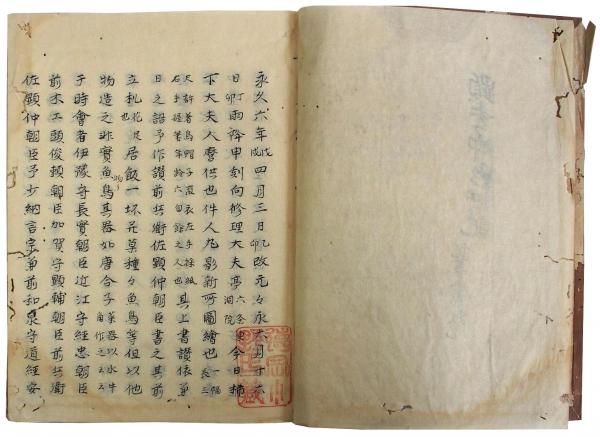 永久六年戊戌四月三日改元々永六月十六
日丁卯雨降申刻向修理大夫亭六条洞院東今日柿
下大夫人麿供也件人丸影新所圖繪也一幅長三
尺許着烏帽子直衣左手操紙右手握筆年齢六旬餘之人也其上書讃依兼
日之語予作讃前兵衛佐顕仲朝臣書之其前
立机花足也居飯一坏并菓種々魚鳥等但以他
物造之非實魚鳥其器如唐合子
于時會者伊豫守長實朝臣近江守經忠朝臣
前木工頭俊頼朝臣加賀守顕輔朝臣前兵衛
佐顕仲朝臣予少納言宗兼前和泉守道經安